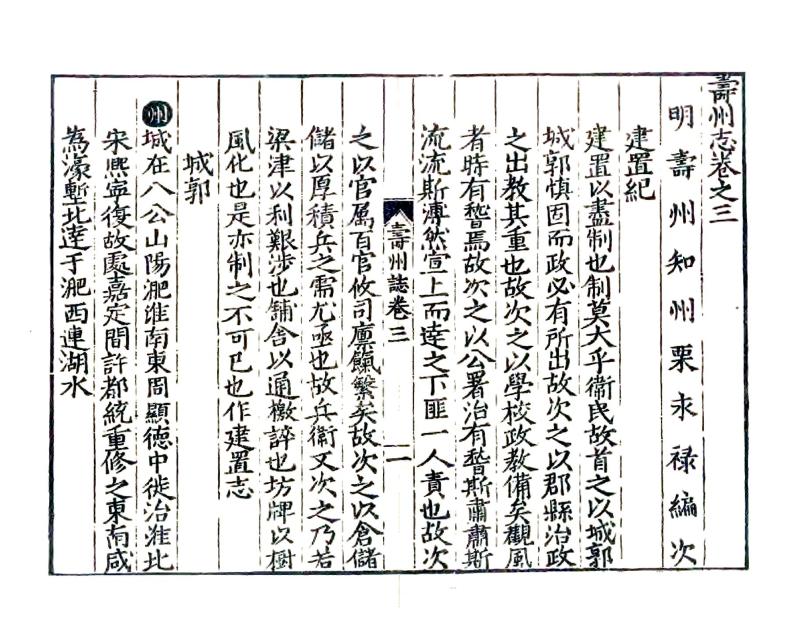 壽州志卷之三
明壽州知州栗永祿編次
建置紀
建置以盡制也制莫大乎衞民故首之以城郭
城郭慎固而政必有所出故次之以郡縣治政
之出教其重也故次之以學校政教備矣觀風
者時有嵆焉故次之以公署治有嵆斯肅肅斯
流流斯溥然宣上而逹之下匪一人責也故次
壽州誌卷三
一
之以官属百官攸司廪餼繁矣故次之以倉儲
儲以厚積兵之需尤亟也故兵衞又次之乃若
梁津以利艱涉也舖舎以通檄誶也坊牌以樹
風化也是亦制之不可已也作建置志
城郭
州城在八公山陽淝淮南東周顯徳中徙治淮北
宋熈寧復故處嘉定間許都統重修之東南咸
為濠塹北逹于淝西連湖水